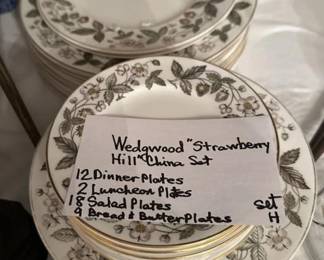 Wedgwood "Strawberry
Hill" China Set
12 Dinner Plates
2 Luncheon Plates
18 Salad Plates set
9 Bread & Butter Plates H